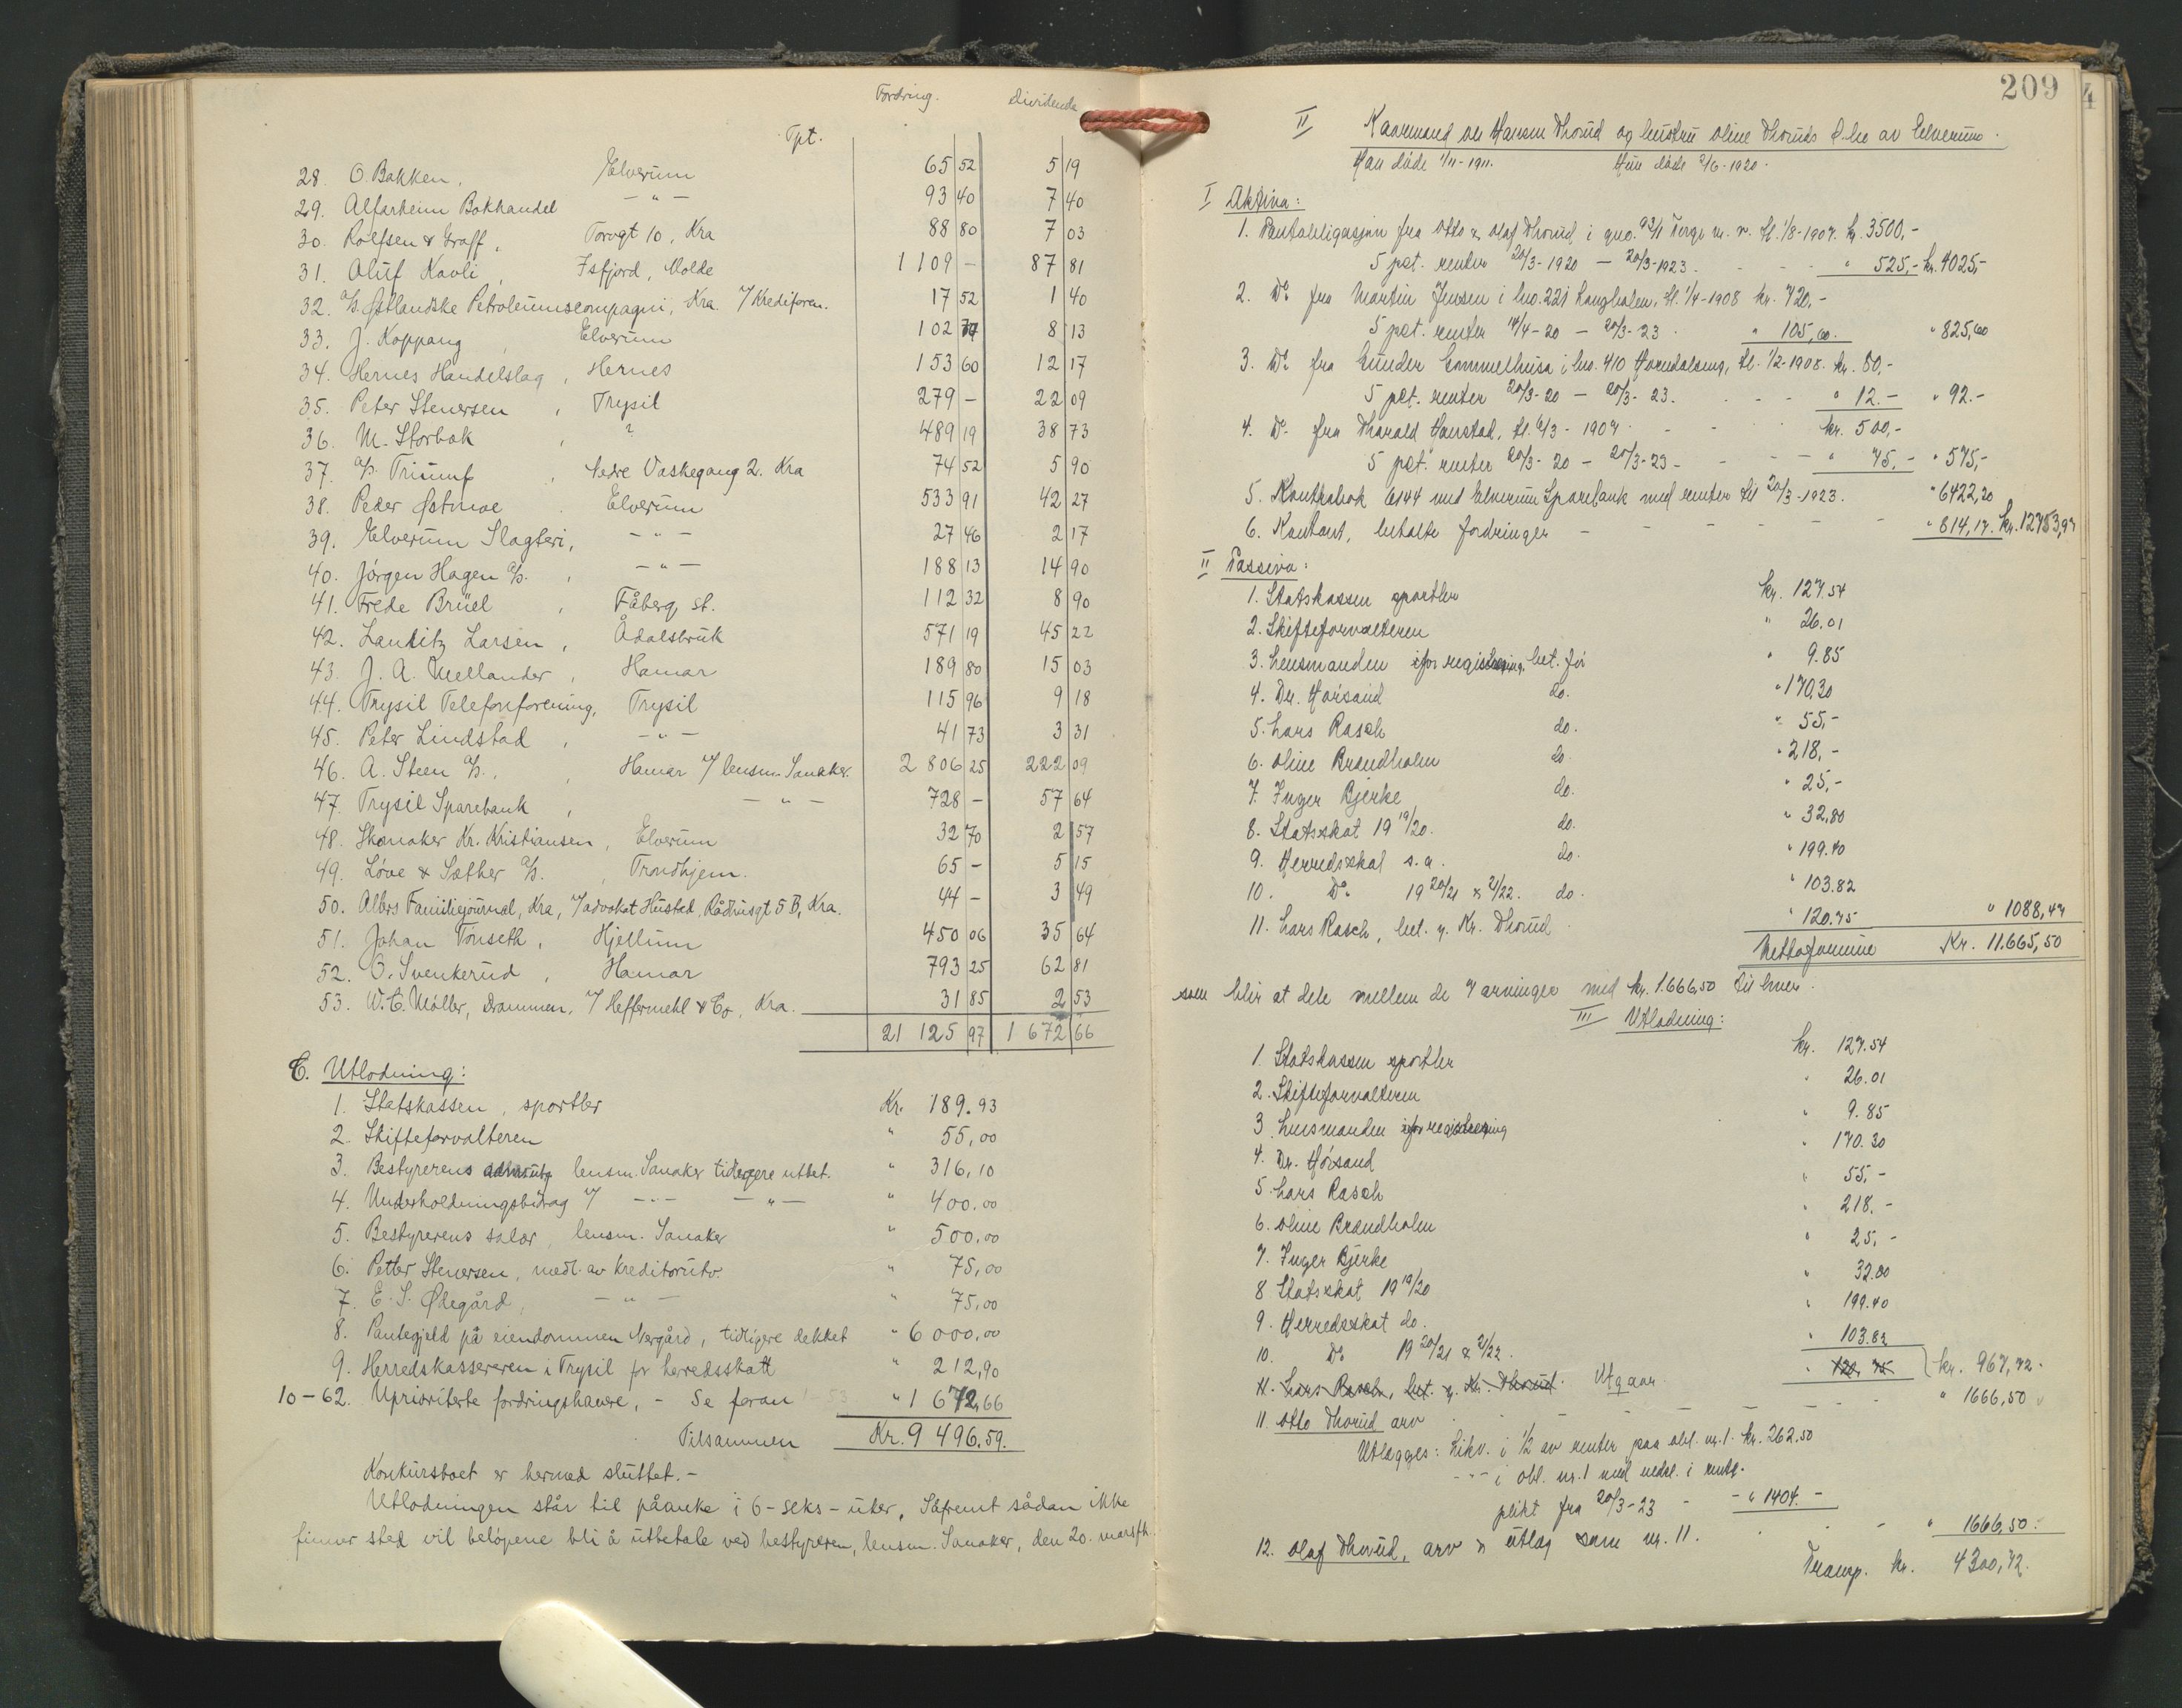 Fordring. Dividende
Tpt.
28. O. Bakken, Elverum 65 52 5 19
29. Alfarheim Bokhandel — " — 93 40 7 40
30. Rolfsen & Graff, Torvgt 10, Kra 88 80 7 03
31. Oluf Kavli, Isfjord, Molde 1 109 - 87 81
32. A/S. Østlandske Petroleumscompagni, Kra. v/ Krediforen. 17 52 1 40
33. J. Koppang, Elverum 102 77 8 13
34. Hernes Handelslag, Hernes 153 60 12 17
35. Peter Stenersen, Trysil 279 - 22 09
36. M. Storbak, ? 489 19 38 73
37. A/S. Triumf, Nedre Vaskegang 2. Kra 74 52 5 90
38. Peder Østmoe, Elverum 533 91 42 27
39. Elverum Slagteri, — " — 27 46 2 17
40. Jörgen Hagen A/S., — " — 188 13 14 90
41. Frede Brüel, Fåberg st. 112 32 8 90
42. Lauritz Larsen, Ådalsbruk 571 19 45 22
43. J. A. Mellander, Hamar 189 80 15 03
44. Trysil Telefonforening, Trysil 115 96 9 18
45. Peter Lindstad, — " — 41 73 3 31
46. A. Steen A/S., Hamar v/ lensm. Sanaker. 2 806 25 222 09
47. Trysil Sparebank, — " — 728 - 57 64
48. Skomaker Kr. Kristiansen, Elverum 32 70 2 57
49. Löve & Sæther A/S., Trondhjem. 65 - 5 15
50. Allers Familiejournal, Kra, v/ advokat Hustad, Rådhusgt 5 B, Kra. 44 - 3 49
51. Johan Tönseth, Hjellum 450 06 35 64
52. O. Svenkerud, Hamar 793 25 62 81
53. W. C. Möller, Drammen, v/ Heffermehl & Co, Kra. 31 85 2 53
21 125 97 1 672 66
C. Utlodning:
1. Statskassen, sportler Kr. 189.93
2. Skifteforvalteren " 55,00
3. Bestyrerens lensm. Sanaker tidligere utbet. " 316,10
4. Underholdningsbidrag v/ — " — — " — " 400.00
5. Bestyrerens salær, lensm. Sanaker " 500,00
6. Petter Stenersen, medl. av kreditorutv. " 75,00
7. E. S. Ødegård, — " — " 75,00
8. Pantegjeld på eiendommen Nergård, tidligere dekket " 6 000,00
9. Herredskassereren i Trysil for herredsskatt " 212,90
10-62. Uprioriterte fordringshavere, - Se foran " 1 672,66
Tilsammen Kr. 9 496.59.
Konkursboet er hermed sluttet. -
Utlodningen står til påanke i 6 - seks - uker. Såfremt sådan ikke
finner sted vil belöpene bli å utbetale ved bestyreren, lensm. Sanaker, den 20. mars fk.
209
II Kaarmand Ole Hansen Thorud og hustru Oline Thoruds d.bo av Elverum.
Han döde 1/11-1911. Hun döde 2/6-1920.
I Aktiva:
1. Pantobligasjon fra Otto & Olaf Thorud i gno. 93/1 Berge m. v. tl. 1/8-1907. kr. 3500,-
5 pct. renter 20/3-1920 - 20/3-1923. " 525,- kr. 4025,-
2. Do fra Martin Jensen i lno. 221 Langholen, tl. 1/4-1908 kr. 720,-
5 pct. renter 14/4-20 - 20/3-23. " 105,60. " 825,60
3. Do fra Gunder Gammelhusa i lno. 410 tl. 1/2-1908. kr. 80,-
5 pct. renter 20/3-20 - 20/3-23. " 12.- " 92.-
4. Do fra Tharald Hanstad, tl. 6/3-1907. kr. 500,-
5 pct. renter 20/3-20 - 20/3-23 - " 75,- " 575,-
5. Kontrabok 6144 med Elverum Sparebank med renter til 20/3-1923. " 6422,20
6. Kontant, betalte fordringer " 814,17. kr. 12753,97
II Passiva:
1. Statskassen sportler kr. 127.54
2. Skifteforvalteren " 26.01
3. Lensmanden for registrering bet. för " 9.85
4. Dr. Hörsand do. " 170.30
5. Lars Rasch do. " 55,-
6. Oline Brandholm do. " 218,-
7. Inger Bjerke do. " 25,-
8. Statsskat 19 19/20. do. " 32,80
9. Herredsskat s. a. do. " 199.40
10. Do 19 20/21 & 21/22. do. " 103.82
11. Lars Rasch, bet. g. Kr. Thorud " 120.75 " 1088,47
Nettoformue Kr. 11.665,50
som blir at dele mellem de 7 arvinger med kr. 1.666,50 til hver.
III Utlodning:
1. Statskassen sportler kr. 127.54
2. Skifteforvalteren " 26.01
3. Lensmanden for registrering " 9.85
4. Dr. Hörsand " 170.30
5. Lars Rasch " 55,-
6. Oline Brandholm " 218.-
7. Inger Bjerke " 25,-
8 Statsskat 19 19/20 " 32.80
9. Herredsskat do. " 199.40
10. Do 19 20/21 & 21/22. " 103.82
11. Lars Rasch, bet. g. Kr. Thorud. Utgaar. " 120.75 kr. 967,72.
11. Otto Thorud arv " 1666,50
Utlægges: Likv. i 1/2 av renter paa obl. nr. 1. kr. 262.50
- " - i obl. nr. 1 med nedsl. i rente-
plikt fra 20/3-23 - - " 1404. -
12. Olaf Thorud, arv & utlag som nr. 11. " 1666,50.
Transp. kr. 4300,72.